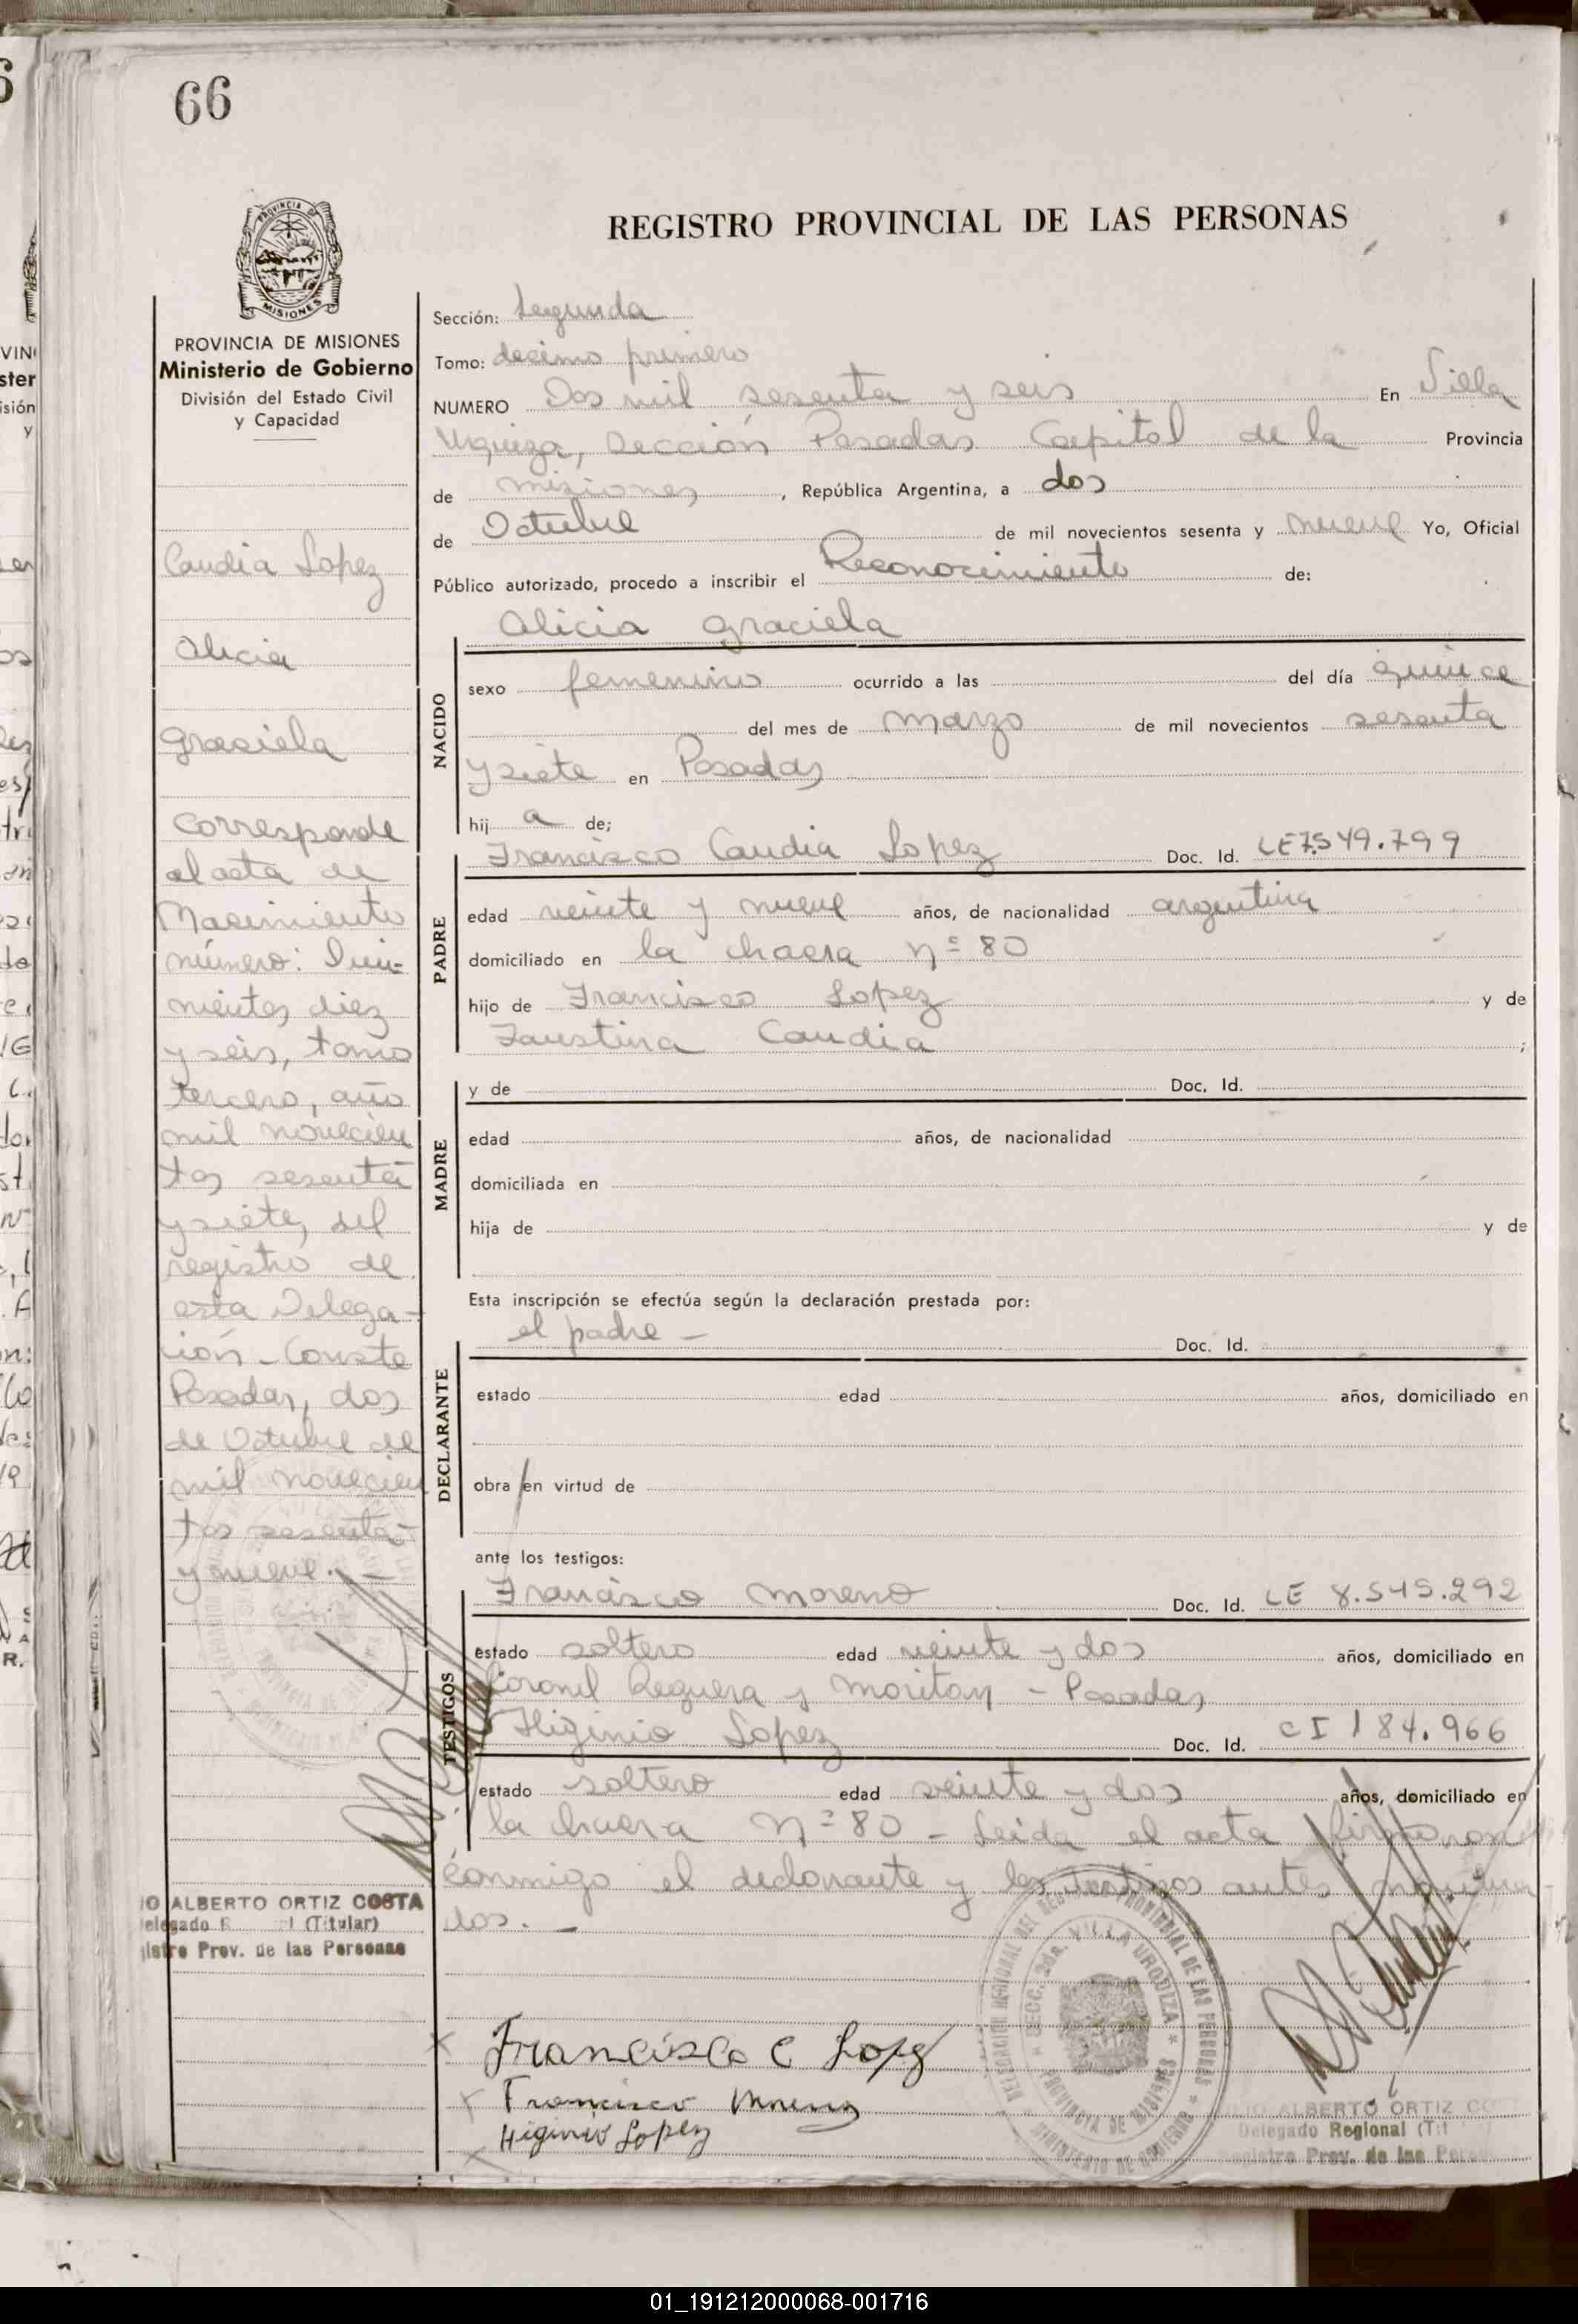 66
REGISTRO PROVINCIAL DE LAS PERSONAS
PROVINCIA DE MISIONES
Ministerio de Gobierno
División del Estado Civil
y Capacidad
Caudia Lopez
Alicia
Graciela
Corresponde
al acta de
Nacimiento
número: Quin-
nientos diez
y seis, tomo
tercero, año
mil novecien
tos sesenta
y siete, del
registro de
esta Delega-
ción - Conste
Posadas, dos
de Octubre de
mil novecien
tos sesenta
y nueve. -
IO ALBERTO ORTIZ COSTA
(Titular)
Prov. de las Personas
Sección: Segunda
Tomo: decimo primero
NUMERO Dos mil sesenta y seis En Villa
Urquiza, Sección Posadas Capital de la Provincia
de Misiones, República Argentina, a dos
de Octubre de mil novecientos sesenta y nueve Yo, Oficial
Público autorizado, procedo a inscribir el Reconocimiento de:
Alicia Graciela
NACIDO
sexo femenino ocurrido a las del día quince
del mes de Marzo de mil novecientos sesenta
y siete en Posadas
hij a de;
Francisco Caudia Lopez Doc. Id. LE 7.549.799
PADRE
edad veinte y nueve años, de nacionalidad argentina
domiciliado en la chacra nº 80
hijo de Francisco Lopez y de
Faustina Caudia ;
y de Doc. Id.
MADRE
edad años, de nacionalidad
domiciliada en
hija de y de
Esta inscripción se efectúa según la declaración prestada por:
el padre - Doc. Id.
DECLARANTE
estado edad años, domiciliado en
obra en virtud de
ante los testigos:
Francisco Moreno Doc. Id. LE 8.545.292
TESTIGOS
estado soltero edad veinte y dos años, domiciliado en
Coronel Reguera y Moritan - Posadas
Higinio Lopez Doc. Id. CI 184.966
estado soltero edad veinte y dos años, domiciliado en
la chacra nº 80 - Leida el acta firmaron
conmigo el declarante y los testigos antes nombra-
dos. -
Francisco C Lopez
Francisco Moreno
Higinio Lopez
DELEGACION REGIONAL DEL REGISTRO PROVINCIAL DE LAS PERSONAS
SECC. 2da. VILLA URQUIZA
PROVINCIA DE MISIONES
MINISTERIO DE GOBIERNO
ALBERTO ORTIZ CO
Delegado Regional (Tit
Prov. de las Pers
01_191212000068-001716